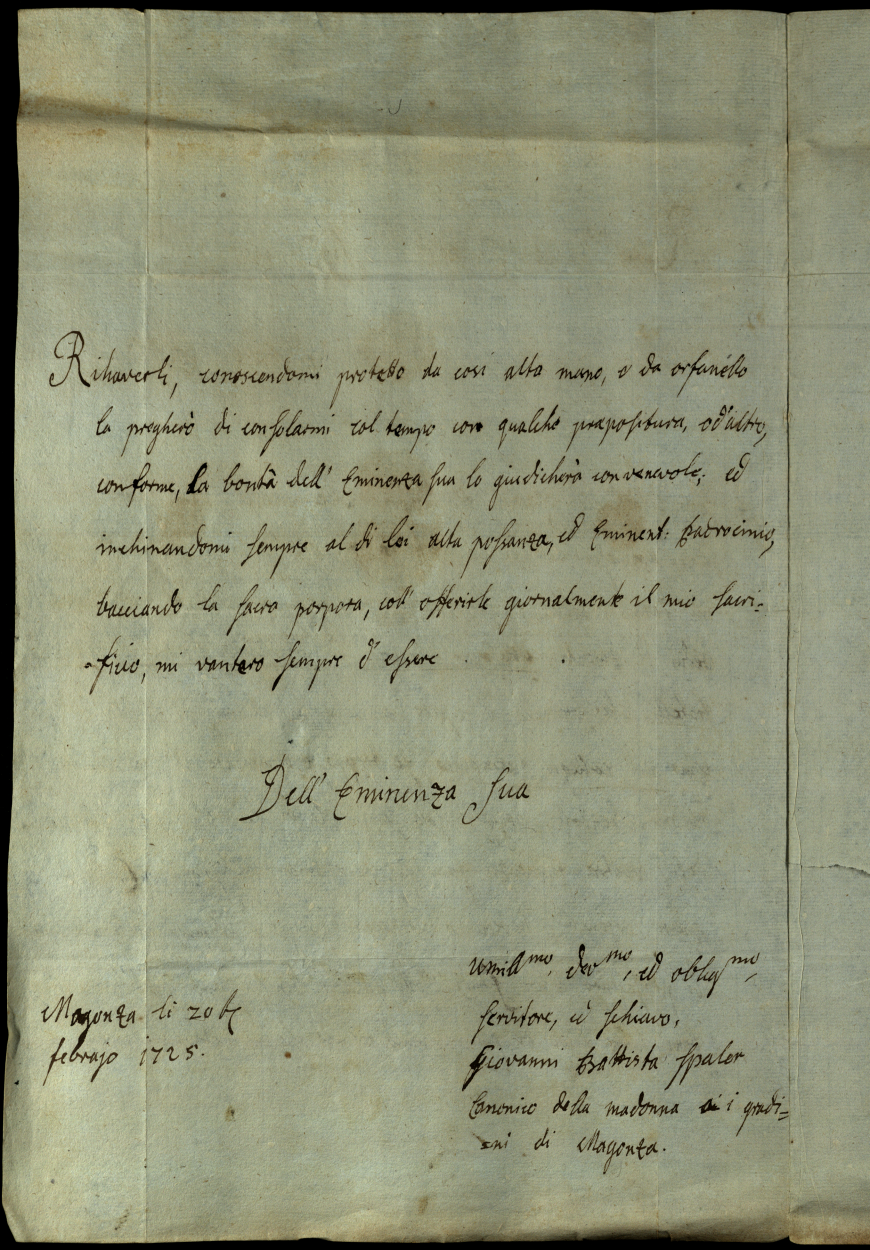 Rihaverli, conoscendomi protetto da così alta mano, e da orfanello
la pregherò di consolarmi col tempo con qualche prepositura, od'altro,
conforme, la bontà dell' Eminenza sua lo giudicherà convenevole; ed
inchinandomi sempre al di lei alta possanza, ed Eminent: Padrocinio,
bacciando la sacra porpora, coll' offerirle giornalmente il mio sacri=
=ficio, mi vantero sempre d' essere
Dell' Eminenza sua
umill^mo, dev^mo, ed oblig^mo,
servitore, e schiavo,
Giovanni Battista Spaler
Canonico della madonna ai i gradi=
=ni di Magonza.
Magonza li 20
febrajo 1725.